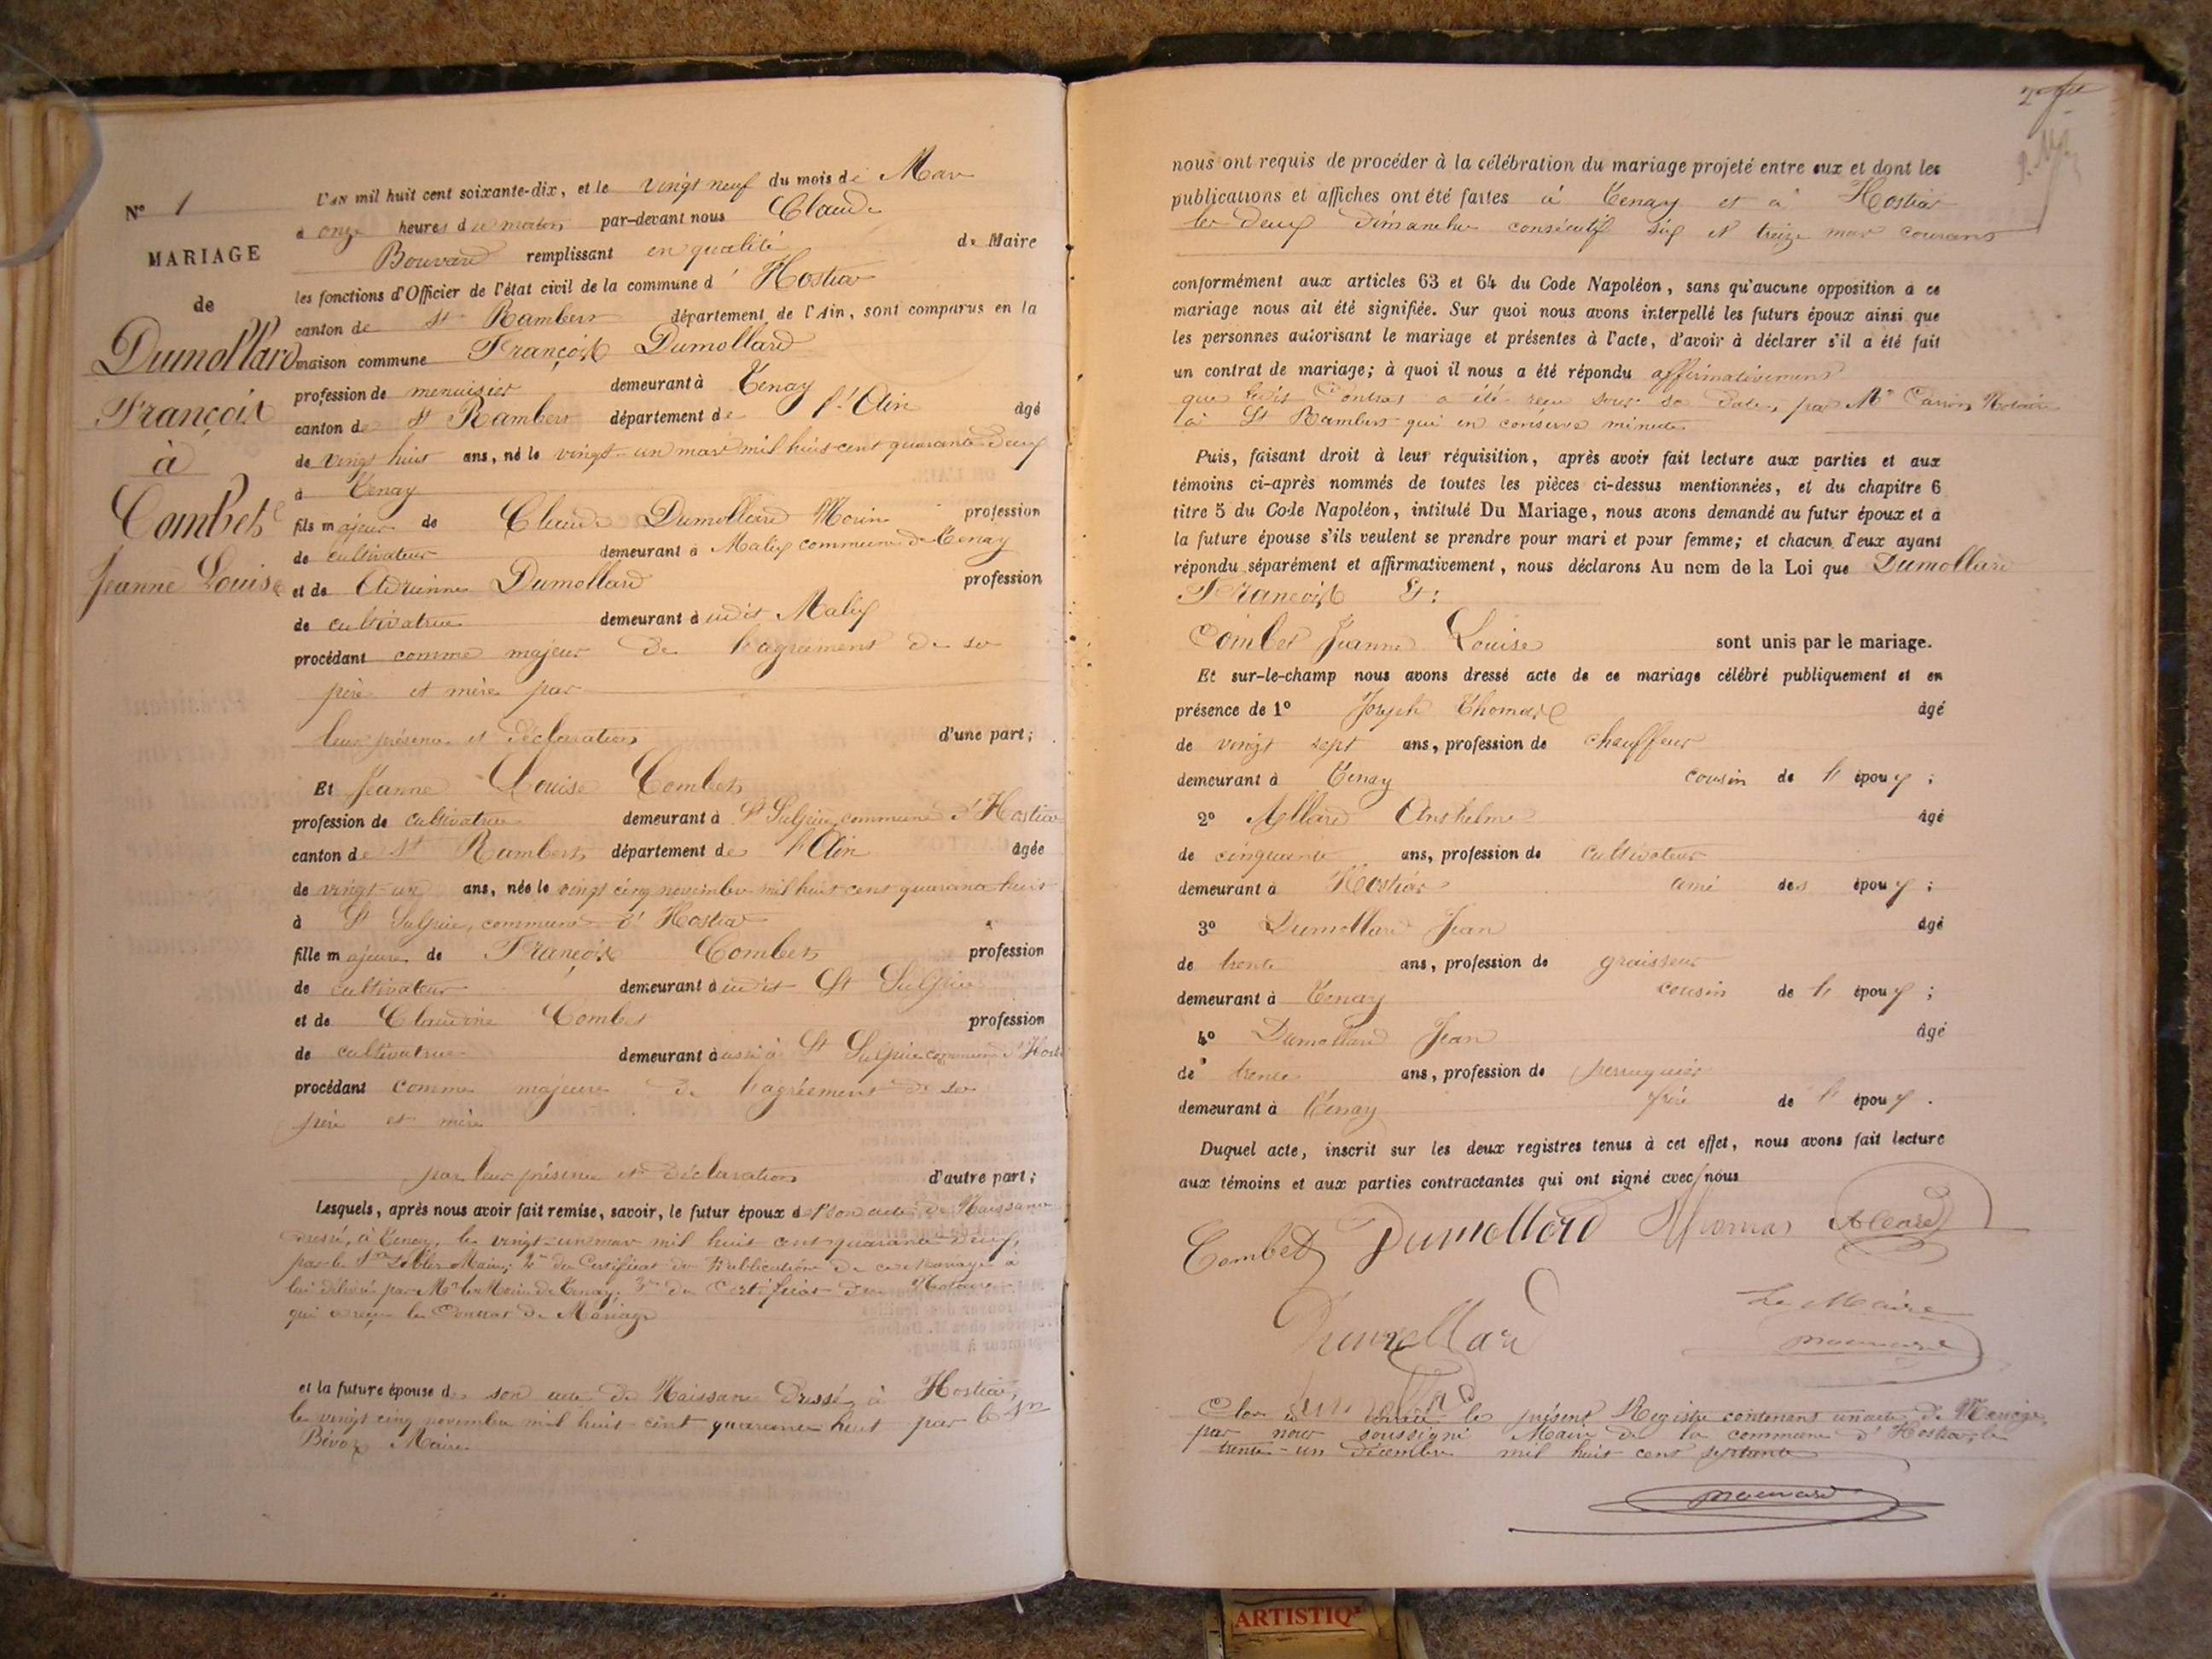 N° 1
MARIAGE
de
Dumollard
François
à
Combet
Jeanne Louise
L'AN mil huit cent soixante-dix, et le vingt neuf du mois de Mars
à onze heures du matin par-devant nous Claude
Bouvard remplissant en qualité de Maire
les fonctions d'Officier de l'état civil de la commune d'Hostias
canton de St Rambert département de l'Ain, sont comparus en la
maison commune François Dumollard
profession de menuisier demeurant à Tenay
canton de St Rambert département de l'Ain âgé
de vingt huit ans, né le vingt-un mars mil huit cent quarante deux
à Tenay
fils majeur de Claude Dumollard Morin profession
de cultivateur demeurant à Malix commune de Tenay
et de Adrienne Dumollard profession
de cultivatrice demeurant à udit Malix
procédant comme majeur de l'agrément de ses
père et mère par
leur présence et déclaration d'une part;
Et Jeanne Louise Combet
profession de cultivatrice demeurant à St Sulpice, commune d'Hostias
canton de St Rambert département de l'Ain âgée
de vingt-un ans, née le vingt cinq novembre mil huit cent quarante huit
à St Sulpice, commune d'Hostias
fille majeure de François Combet profession
de cultivateur demeurant à udit St Sulpice
et de Claudine Combet profession
de cultivatrice demeurant à ussi à St Sulpice commune d'Host
procédant comme majeure de l'agrément de ses
père et mère
par leur présence et déclaration d'autre part;
Lesquels, après nous avoir fait remise, savoir, le futur époux de 1° son acte de Naissance
dressé, à Tenay, le vingt-un mars mil huit cent quarante deux,
par le Sr Maire; 2° du Certificat de Publication de ce Mariage à
lui délivré par Mr le Maire de Tenay; 3° du Certificat du Notaire
qui a reçu le Contrat de Mariage
et la future épouse de son acte de Naissance dressé à Hostias,
le vingt cinq novembre mil huit cent quarante huit par le Sr
Bévoz Maire
2e fet
nous ont requis de procéder à la célébration du mariage projeté entre eux et dont les
publications et affiches ont été faites à Tenay et à Hostias
les deux dimanches consécutifs six et treize mars courant
conformément aux articles 63 et 64 du Code Napoléon, sans qu'aucune opposition à ce
mariage nous ait été signifiée. Sur quoi nous avons interpellé les futurs époux ainsi que
les personnes autorisant le mariage et présentes à l'acte, d'avoir à déclarer s'il a été fait
un contrat de mariage; à quoi il nous a été répondu affirmativement
que ledit Contrat a été reçu sous sa date, par Me Carrion Notaire
à St Rambert qui en conserve minute
Puis, faisant droit à leur réquisition, après avoir fait lecture aux parties et aux
témoins ci-après nommés de toutes les pièces ci-dessus mentionnées, et du chapitre 6
titre 5 du Code Napoléon, intitulé Du Mariage, nous avons demandé au futur époux et à
la future épouse s'ils veulent se prendre pour mari et pour femme; et chacun d'eux ayant
répondu séparément et affirmativement, nous déclarons Au nom de la Loi que Dumollard
François Et:
Combet Jeanne Louise sont unis par le mariage.
Et sur-le-champ nous avons dressé acte de ce mariage célébré publiquement et en
présence de 1° Joseph Thomas âgé
de vingt sept ans, profession de chauffeur
demeurant à Tenay cousin de l'époux;
2° Allard Anthelme âgé
de cinquante ans, profession de cultivateur
demeurant à Hostias ami des époux;
3° Dumollard Jean âgé
de trente ans, profession de graisseur
demeurant à Tenay cousin de l'époux;
4° Dumollard Jean âgé
de trente ans, profession de perruquier
demeurant à Tenay frère de l'époux.
Duquel acte, inscrit sur les deux registres tenus à cet effet, nous avons fait lecture
aux témoins et aux parties contractantes qui ont signé avec nous
Combet Dumollard Thomas Allard
Dumollard
Le Maire
Bouvard
Clos et le présent Registre contenant un acte de Mariage,
par nous soussigné Maire de la commune d'Hostias, le
trente-un décembre mil huit cent septante
Bouvard
ARTISTIQ